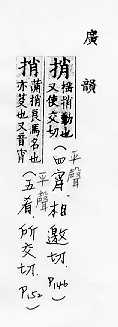 廣韻
捎 搖捎動也又使交切 (平聲四宵.相邀切.P146)
捎 蒲捎良馬名也亦芟也又音宵 (平聲五肴.所交切.P152)